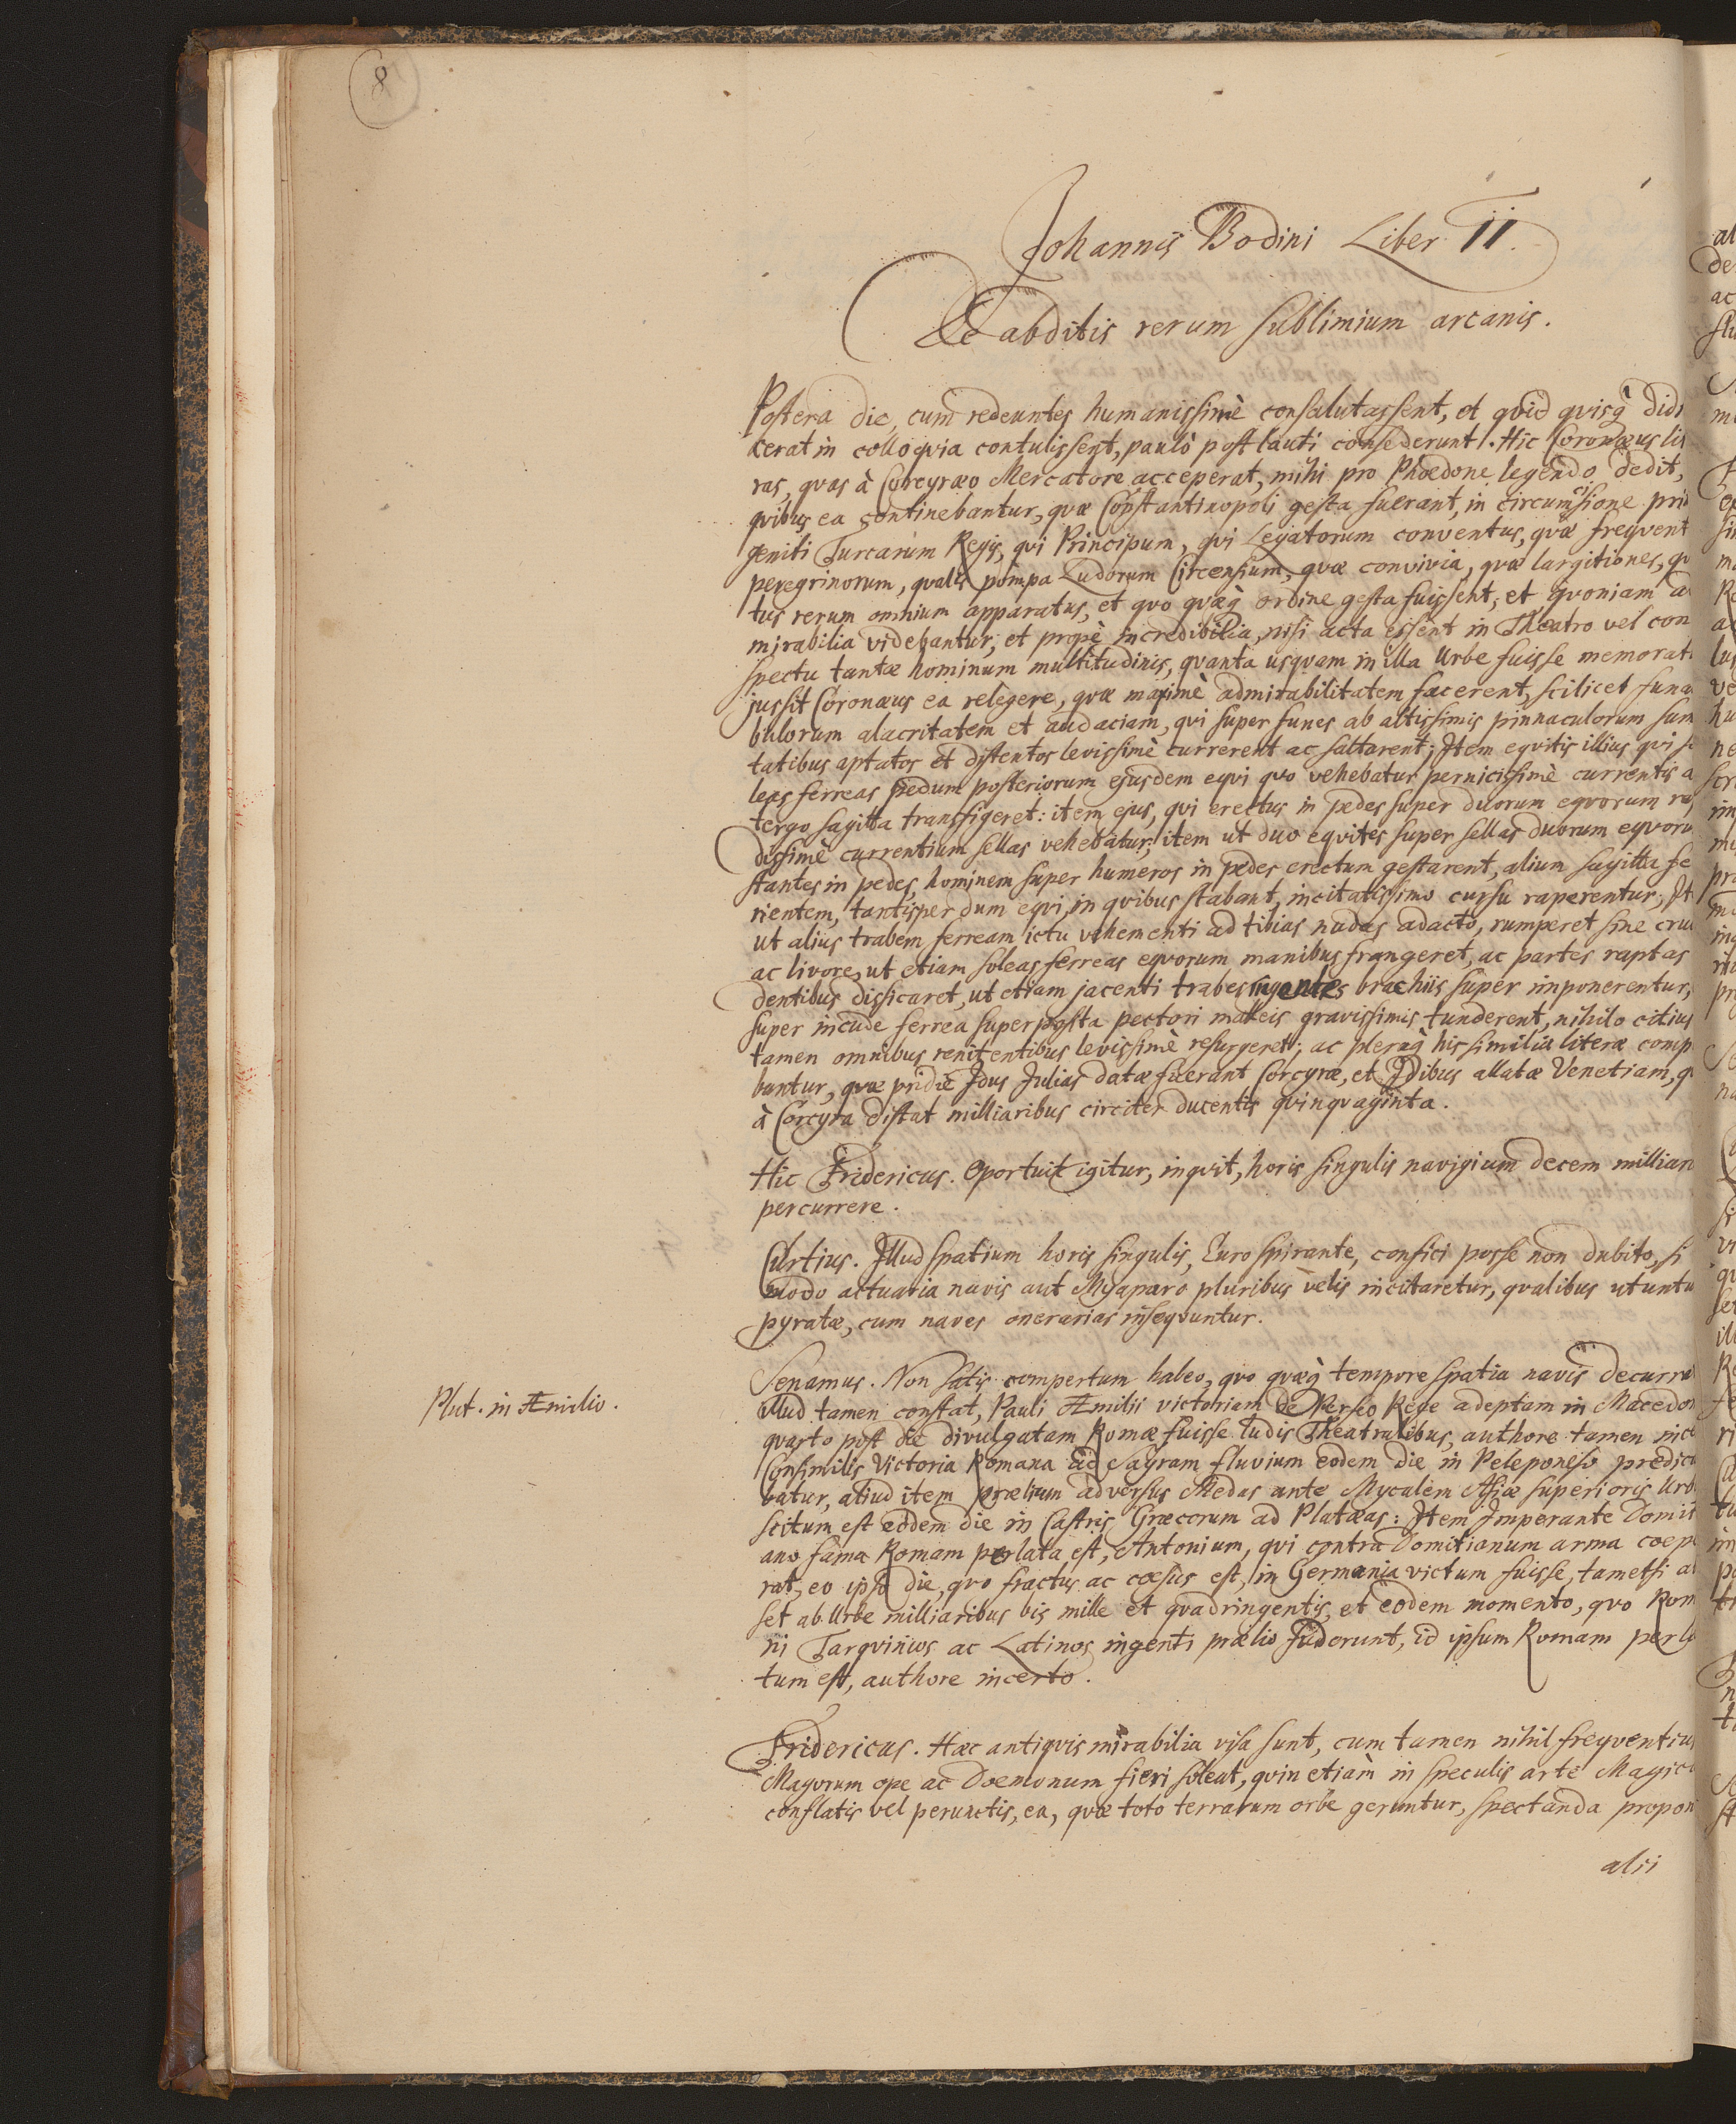 8
Johannis Bodini Liber II.
De abditis rerum sublimium arcanis.
Postera die, cum redeuntes humanissimè consalutassent, et qvid qvisq̀ didi
cerat in colloqvia contulissent, paulò post lauti consederunt. Hic Coronæus lit
ras, qvas à Corcyræo Mercatore acceperat, mihi pro Phœdone legendo dedit,
qvibus ea continebantur, qvæ Constantinopoli gesta fuerant, in circumcisione pri
geniti Turcarum Regis, qvi Principum, qvi Legatorum conventus, qvæ freqvent
peregrinorum, qvalis pompa Ludorum Circensium, qvæ convivia, qvæ largitiones, qv
tus rerum omnium apparatus, et qvo qvæq̀ ordine gesta fuissent, et qvoniam a
mirabilia videbantur, et propè incredibilia, nisi acta essent in Theatro vel con
spectu tantæ hominum multitudinis, qvanta usqvam in illa Urbe fuisse memorat
jussit Coronæus ea relegere, qvæ maximè admirabilitatem facerent, scilicet funa
bulorum alacritatem et audaciam, qvi super funes ab altissimis pinnaculorum sum
tatibus aptatos et distentos levissimè currerent ac saltarent; Item eqvitis illius qvi so
leas ferreas pedum posteriorum ejusdem eqvi qvo vehebatur pernicissimè currentis a
tergo sagitta transfigeret: item ejus, qvi erectus in pedes super duorum eqvorum ra
dissimè currentium sellas vehebatur, item ut duo eqvites super sellas duorum eqvoru
stantes in pedes, hominem super humeros in pedes erectum gestarent, alium sagitta fe
rientem, tantisper dum eqvi, in qvibus stabant, incitatissimo cursu raperentur; It
ut alius trabem ferream ictu vehementi ad tibias nudas adacto, rumperet sine cru
ac livore, ut etiam soleas ferreas eqvorum manibus frangeret, ac partes raptas
dentibus dissicaret, ut etiam jacenti trabes ingentes brachiis super imponerentur,
super incude ferrea superposta pectori malleis gravissimis tunderent, nihilo citius
tamen omnibus renitentibus levissimè resurgeret; ac pleraq̀ his similia literæ comp
bantur, qvæ pridie Idus Julias datæ fuerant Corcyræ, et Idibus allatæ Venetiam, q
à Corcyra distat milliaribus circiter ducentis qvinqvaginta.
Hic Fridericus. Oportuit igitur, inqvit, horis singulis navigium decem milliar
percurrere.
Curtius. Illud spatium horis singulis, Euro spirante, confici posse non dubito, si
modo actuaria navis aut Myoparo pluribus velis incitaretur, qvalibus utuntu
pyratæ, cum naves onerarias inseqvuntur.
Senamus. Non satis compertum habeo, qvo qvæq̀ tempore spatia navis decurra
Plut. in Æmilio.
illud tamen constat, Pauli Æmilii victoriam de Perseo Rege adeptam in Macedon
qvarto post die divulgatam Romæ fuisse ludis Theatralibus, authore tamen ince
Consimilis Victoria Romana ad Sagram fluvium eodem die in Peleponeso prædic
batur, aliud item prælium adversus Medas ante Mycalem Asiæ superioris Urb
scitum est eodem die in Castris Græcorum ad Platæas: Item Imperante Domit
ano fama Romam perlata est, Antonium, qvi contra Domitianum arma coep
rat, eo ipso die, qvo fractus ac cœsus est, in Germania victum fuisse, tametsi a
set ab Urbe milliaribus bis mille et qvadringentis, et eodem momento, qvo Rom
ni Tarqvinios ac Latinos ingenti prælio fuderunt, id ipsum Romam perla
tum est, authore incerto.
Fridericus. Hæc antiqvis mirabilia visa sunt, cum tamen nihil freqventius
Magorum ope ac Dœmonum fieri soleat, qvin etiàm in speculis arte Magic
conflatis vel perunctis, ea, qvæ toto terrarum orbe geruntur, spectanda propon
alii